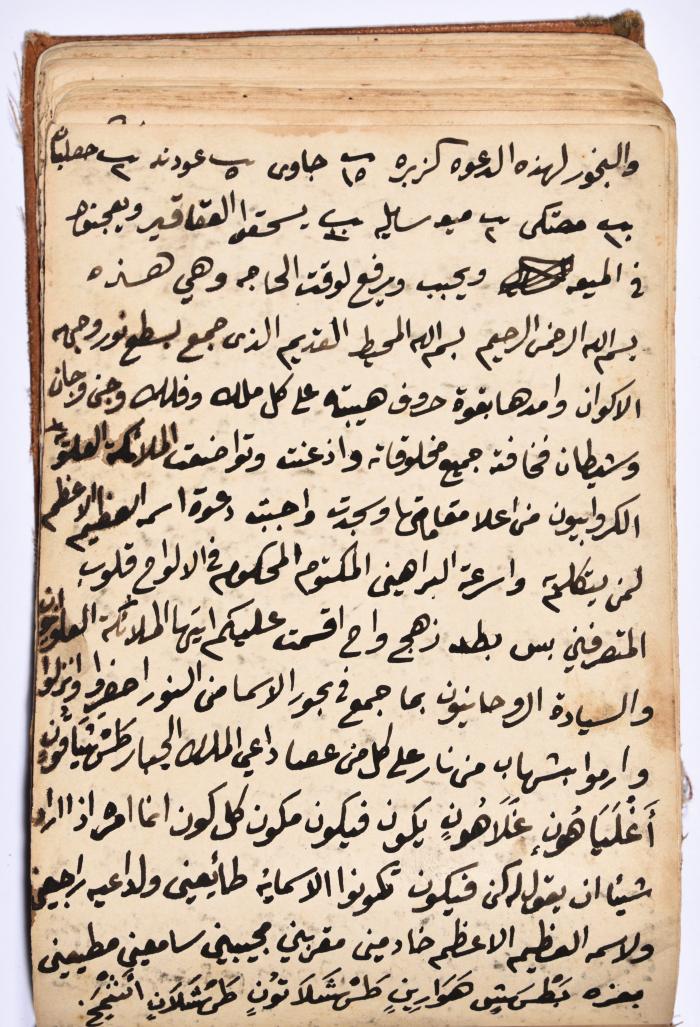 والبخور لهذه الدعوه كزبره ١٥ جاوى عود ند حصلبان
مصتكى ميعه سايله يسحقوا العقاقير ويعجنوا
في الميعه ويحبب ويرفع لوقت الحاجه وهي هذه
بسم الله الرحمن الرحيم بسم الله المحيط القديم الذى جمع بسطع نور وجهه
الاكوان وامدها بقوة حروف هيبته على كل ملك وفلك وجنى وجان
وشيطان فخافته جميع مخلوقاته واذعنت وتواضعت الملائكة العلويه
الكروابيون من اعلا مقاماتها وسجدت واجبت دعوة اسمه العظيم الاعظم
لمن يتكلم به واسرعة البراهينى المكتوم المحكوم في الالواح قلوب
المتصرفيني بس بطد زهج واح اقسمت عليكم ايتها الملائكة العلويه
والسيادة الروحانيون بما جمع في بحور الاسما من النور احضروا وانزلوا
وارموا بشهاب من نار على كل من عصا داعي الملك الجبار طش
أغلياهون غلاهون يكون فيكون مكون كل كون انما امره اذا اراد
شيئا ان يقول له كن فيكون تكونوا الاسمايه طائعينى ولداعيه راجعينى
ولاسمه العظيم الاعظم خادمينى مقربيني مجيبيني سامعيني مطيعيني
بعزه هوارين طش شلاتون طش شلان